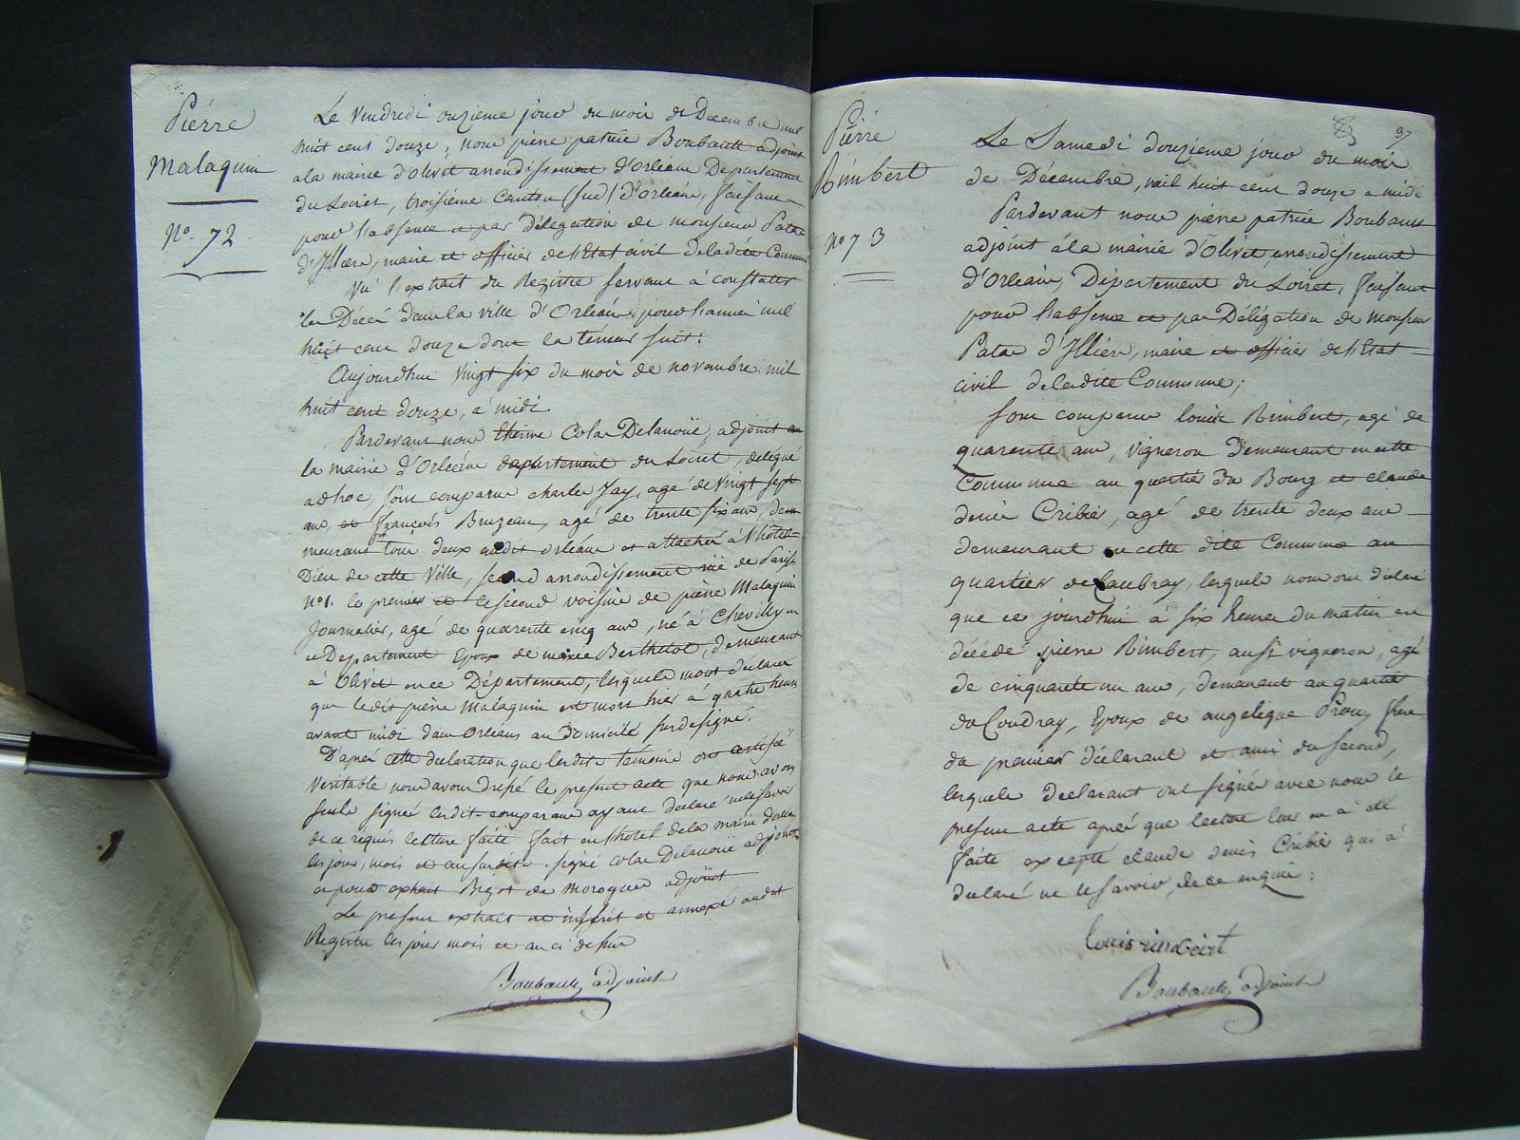 Piérre
Malaquin
No. 72
Le Vendredi onzieme jour du mois de Decembre mil
huit cent douze, nous pierre patrice Boubault adjoint
a la mairie d'olivet arrondissement d'Orleans Departement
du Loiret, troisieme Canton (sud) d'orléans, faisant
pour l'absence et par délégation de monsieur Patas
d'Illiers, maire et officier de l'Etat civil de ladite Commune
Vu l'extrait du Registre servant à constater
les Décés dans la ville d'Orléans pour l'année mil
huit cent douze dont la téneur suit:
Aujourdhui vingt six du mois de novembre mil
huit cent douze, a midi
Pardevant nous Etienne Colas Delanoüe, adjoint au
la mairie d'Orléans departement du Loiret, délégué
adhoc, sont comparus charles Jay, agé de vingt sept
ans et françois Bruzeau, agé de trente six ans, de
meurant tous deux audit orléans et attachés à l'hotel
Dieu de cette Ville, second arrondissement rue de Paris
no 1. le premier et le second voisins de pierre Malaquin
Journalier, agé de quarente cinq ans, né à Chevilly en
ce Departement Epoux de marie Berthelot, demeurant
à Olivet en ce Département, lesquels mont declaré
que ledit pierre Malaquin est mort hier à quatre heures
avant midi dans Orléans au Domicile susdesigné.
D'aprés cette declaration que lesdits témoins ont certifié
Veritable nous avons dressé le present acte que nous avons
seuls signé lesdits comparans ayant declaré ne le savoir
de ce requis lecture faite fait en l'hotel de la mairie d'orléans
les jour, mois et an susdits. signé Colas Delanoüe adjoint
et pour extrait Bigot de Morogues adjoint
Le present extrait a été inséré et annexé audit
Registre les jour mois et an ci dessus
Boubault, adjoint
97
Piérre
Rimbert
no 73
Le Samedi douzieme jour du mois
de Décembre, mil huit cent douze a midi
Pardevant nous pierre patrice Boubault
adjoint à la mairie d'Olivet, arrondissement
d'Orléans, Département du Loiret, faisant
pour l'absence et par Délégation de monsieur
Patas d'Illiers, maire et officier de l'Etat
civil de ladite Commune;
Sont comparus louis Rimbert, agé de
quarente ans, vigneron demeurant en cette
Commune au quartier du Bourg et claude
denis Cribier, agé de trente deux ans
demeurant en cette dite Commune au
quartier de Caubray, lesquels nous ont déclaré
que ce jourdhui à six heures du matin est
décédé pierre Rimbert, aussi vigneron, agé
de cinquante un ans, demeurant au quartier
du Coudray, Epoux de angelique Prou, frere
du premier déclarant et ami du second,
lesquels declarant ont signé avec nous le
present acte aprés que lecture leur en a été
faite excepté claude denis Cribier qui a
declaré ne le savoir, de ce enquis:
louis rimbert
Boubault, adjoint